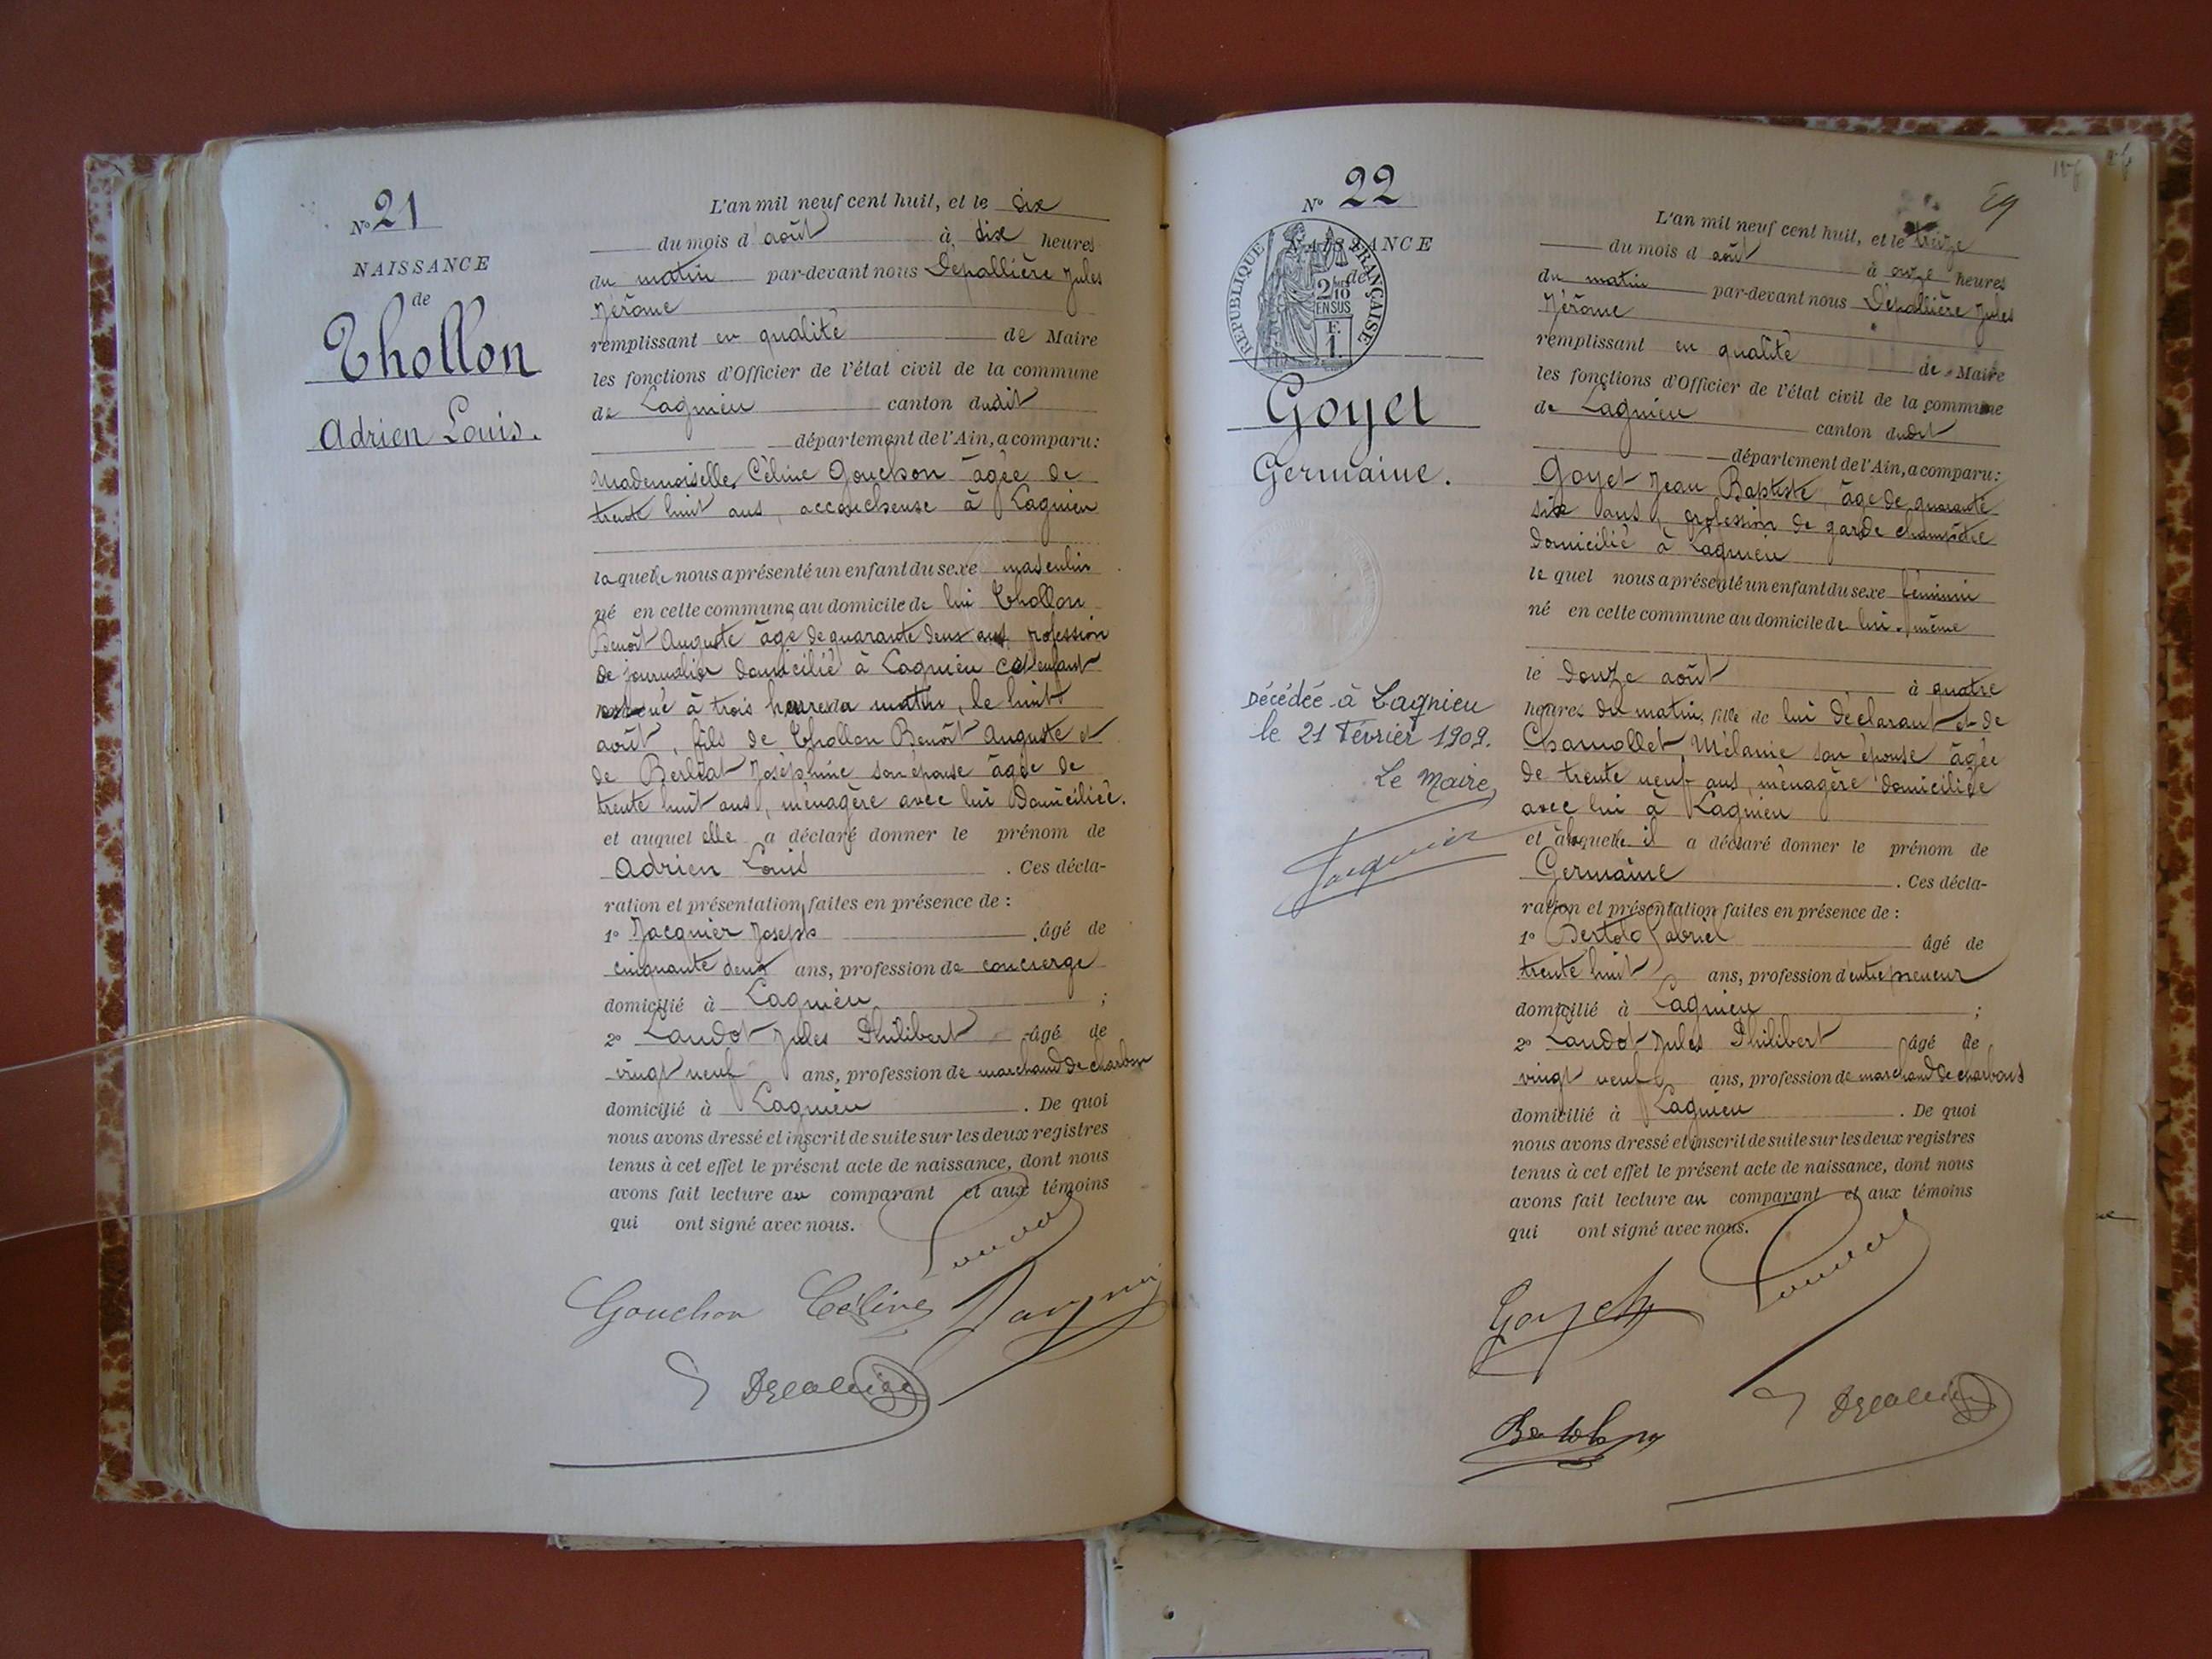 N° 21
NAISSANCE
de
Thollon
Adrien Louis.
L'an mil neuf cent huit, et le dix
du mois d'août à dix heures
du matin par-devant nous Depallière Jules
Jérôme
remplissant en qualité de Maire
les fonctions d'Officier de l'état civil de la commune
de Lagnieu canton dudit
département de l'Ain, a comparu:
Mademoiselle Céline Gouchon âgée de
trente huit ans, accoucheuse à Lagnieu
laquelle nous a présenté un enfant du sexe masculin
né en cette commune au domicile de lui Thollon
Benoît Auguste âgé de quarante deux ans profession
de journalier domicilié à Lagnieu cet enfant
est né à trois heures du matin, le huit
août, fils de Thollon Benoît Auguste et
de Joséphine son épouse âgée de
trente huit ans, ménagère avec lui domiciliée.
et auquel elle a déclaré donner le prénom de
Adrien Louis . Ces décla-
ration et présentation faites en présence de :
1° Jacquier Joseph âgé de
cinquante deux ans, profession de concierge
domicilié à Lagnieu ;
2° Landot Jules Philibert âgé de
vingt neuf ans, profession de marchand de charbon
domicilié à Lagnieu . De quoi
nous avons dressé et inscrit de suite sur les deux registres
tenus à cet effet le présent acte de naissance, dont nous
avons fait lecture au comparant et aux témoins
qui ont signé avec nous.
Landot
Gouchon Céline
J Depallière
N° 22
NAISSANCE
de
REPUBLIQUE FRANÇAISE
2/10
EN SUS
F.
1.
Goyet
Germaine.
Décédée à Lagnieu
le 21 Février 1909.
Le Maire,
Jacquier
59
L'an mil neuf cent huit, et le treize
du mois d'août à onze heures
du matin par-devant nous Dépallière Jules
Jérôme
remplissant en qualité de Maire
les fonctions d'Officier de l'état civil de la commune
de Lagnieu canton dudit
département de l'Ain, a comparu:
Goyet Jean Baptiste, âgé de quarante
six ans, profession de garde champêtre
domicilié à Lagnieu
lequel nous a présenté un enfant du sexe féminin
né en cette commune au domicile de lui-même
le douze août à quatre
heures du matin, fille de lui déclarant et de
Mélanie son épouse âgée
de trente neuf ans, ménagère domiciliée
avec lui à Lagnieu
et à laquelle il a déclaré donner le prénom de
Germaine . Ces décla-
ration et présentation faites en présence de :
1° Bertolo Gabriel âgé de
trente huit ans, profession d'entrepreneur
domicilié à Lagnieu ;
2° Landot Jules Philibert âgé de
vingt neuf ans, profession de marchand de charbons
domicilié à Lagnieu . De quoi
nous avons dressé et inscrit de suite sur les deux registres
tenus à cet effet le présent acte de naissance, dont nous
avons fait lecture au comparant et aux témoins
qui ont signé avec nous.
Landot
Goyet
J Depallière